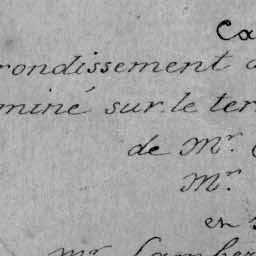 Ca
rondissement d
miné sur le ter
de Mr. 
Mr.
en
Mr Lamber